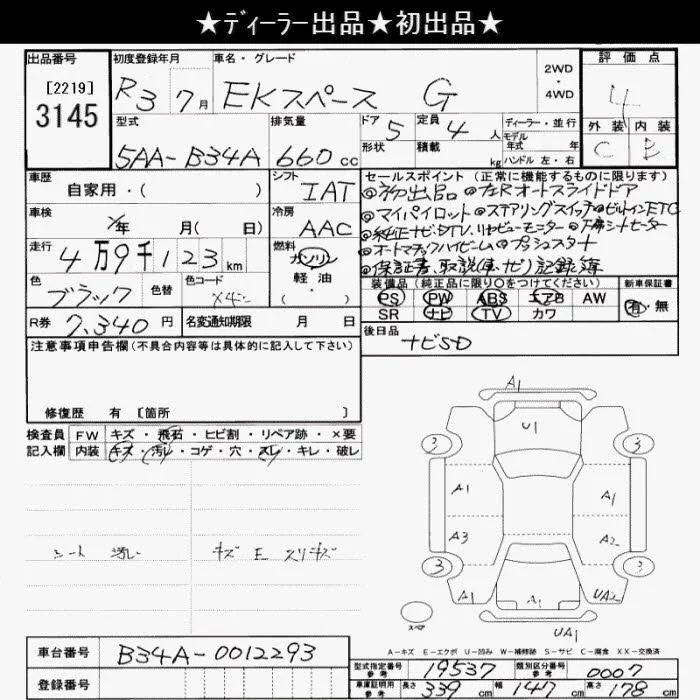 ★ディーラー出品★初出品★
出品番号 初度登録年月 車名・グレード 2WD・4WD 評価点
[2219]
3145
R3 7月 EKスペース G 4
型式 排気量 ドア 定員 ディーラー・並行 外装 内装
5AA-B34A 660cc 5 4人 モデル年式 年 C B
形状 積載 kg ハンドル 左・右
車歴 シフト セールスポイント (正常に機能するものに限ります)
自家用・( ) IAT ◎初出品 ◎左Rオートスライドドア
車検 冷房 ◎マイパイロット ◎ステアリングスイッチ ◎ビルトインETC
年 月( 日) AAC ◎純正ナビ・DTV、リヤビューモニター
走行 燃料 ◎オートマチックハイビーム ◎プッシュスタート
4万9千123km ガソリン 軽油 ( ・ ) ◎保証書、取説(車、ナビ) 記録簿
色 色替 色コード 装備品 (純正品に限り○をつけてください) 新車保証書
ブラック PS PW ABS エアB AW 有・無
SR ナビ TV カワ
R券 7,340円 名変通知期限 月 日 後日品
ナビSD
注意事項申告欄(不具合内容等は具体的に記入して下さい)
修復歴 有 [箇所 ]
検査員 FW キズ・飛石・ヒビ割・リペア跡・×要
記入欄 内装 キズ・汚レ・コゲ・穴・スレ・キレ・破レ
シート 汚レ キズ E スリキズ
A1
U1
3 3
A1 A1
A3 A2
3 3
A1 A1 UA2
スペア
UA1
A-キズ E-エクボ U-凹み W-補修跡 S-サビ C-腐食 XX-交換済
車台番号 B34A-0012293
登録番号
型式指定番号 参考 19537 類別区分番号 参考 0007
車庫証明用 参考 長さ 339cm 幅 147cm 高さ 178cm